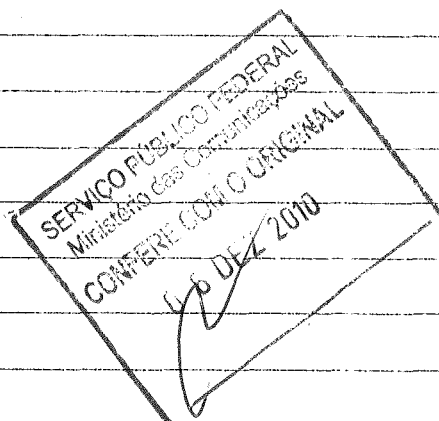 SERVIÇO PÚBLICO FEDERAL
Ministério das Comunicações
CONFERE COM O ORIGINAL
DEZ 2010